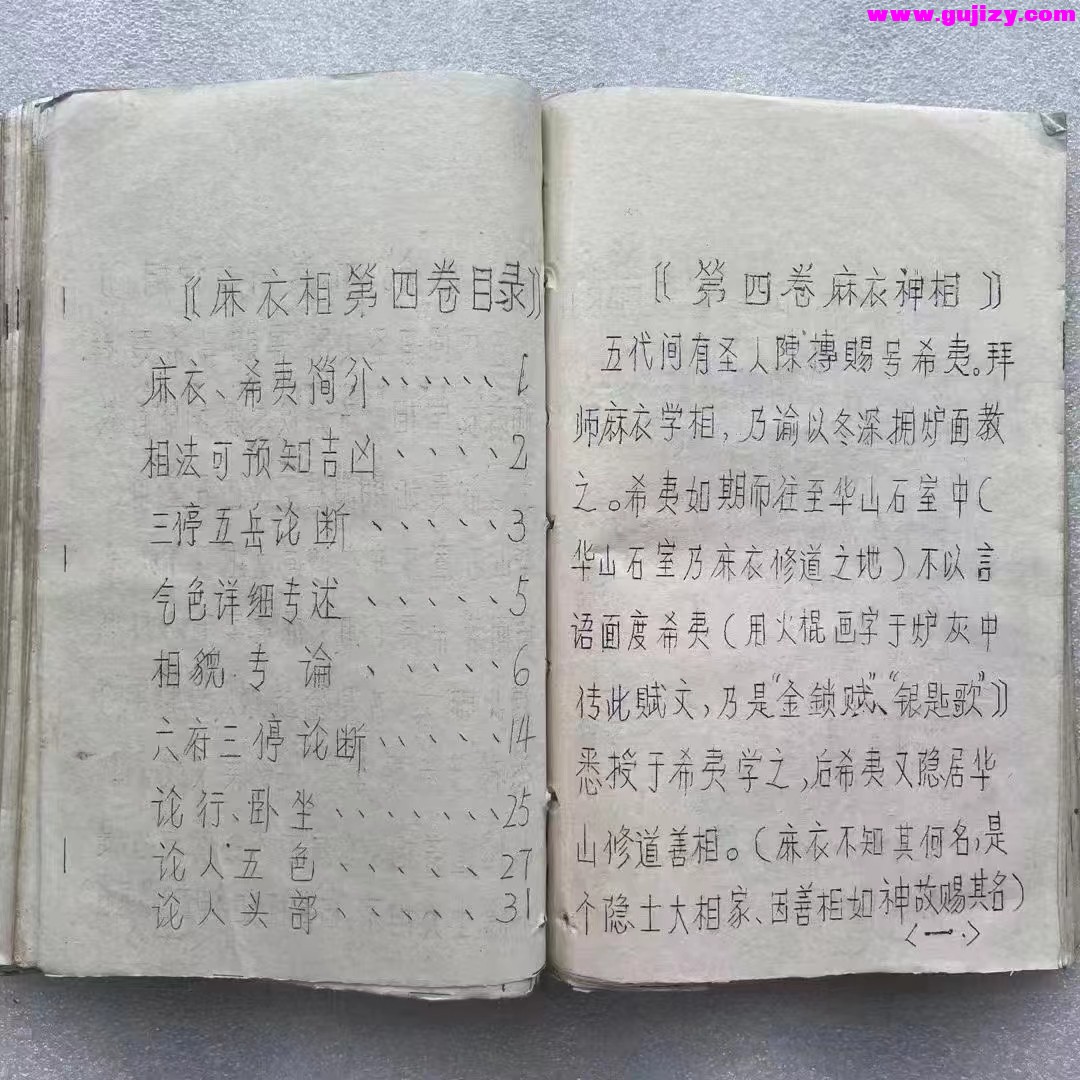 www.gujizy.com
《麻衣相第四卷目录》
麻衣、希夷简介、、、、、、1
相法可预知吉凶、、、、2
三停五岳论断、、、、、3
气色详细专述、、、、、5
相貌专论、、、、、6
六府三停论断、、、、、14
论行、卧坐、、、、、、、25
论人五色、、、、、27
论人头部、、、、、、31
《第四卷麻衣神相》
五代间有圣人陳摶賜号希夷。拜
师麻衣学相,乃谕以冬深拥炉面教
之。希夷如期而往至华山石室中(
华山石室乃麻衣修道之地)不以言
语面度希夷(用火棍画字于炉灰中
传此赋文,乃是“金鎖赋”、“银匙歌”》
悉授于希夷学之,后希夷又隐居华
山修道善相。(麻衣不知其何名,是
个隐士大相家、因善相如神故赐其名)
〈一.〉